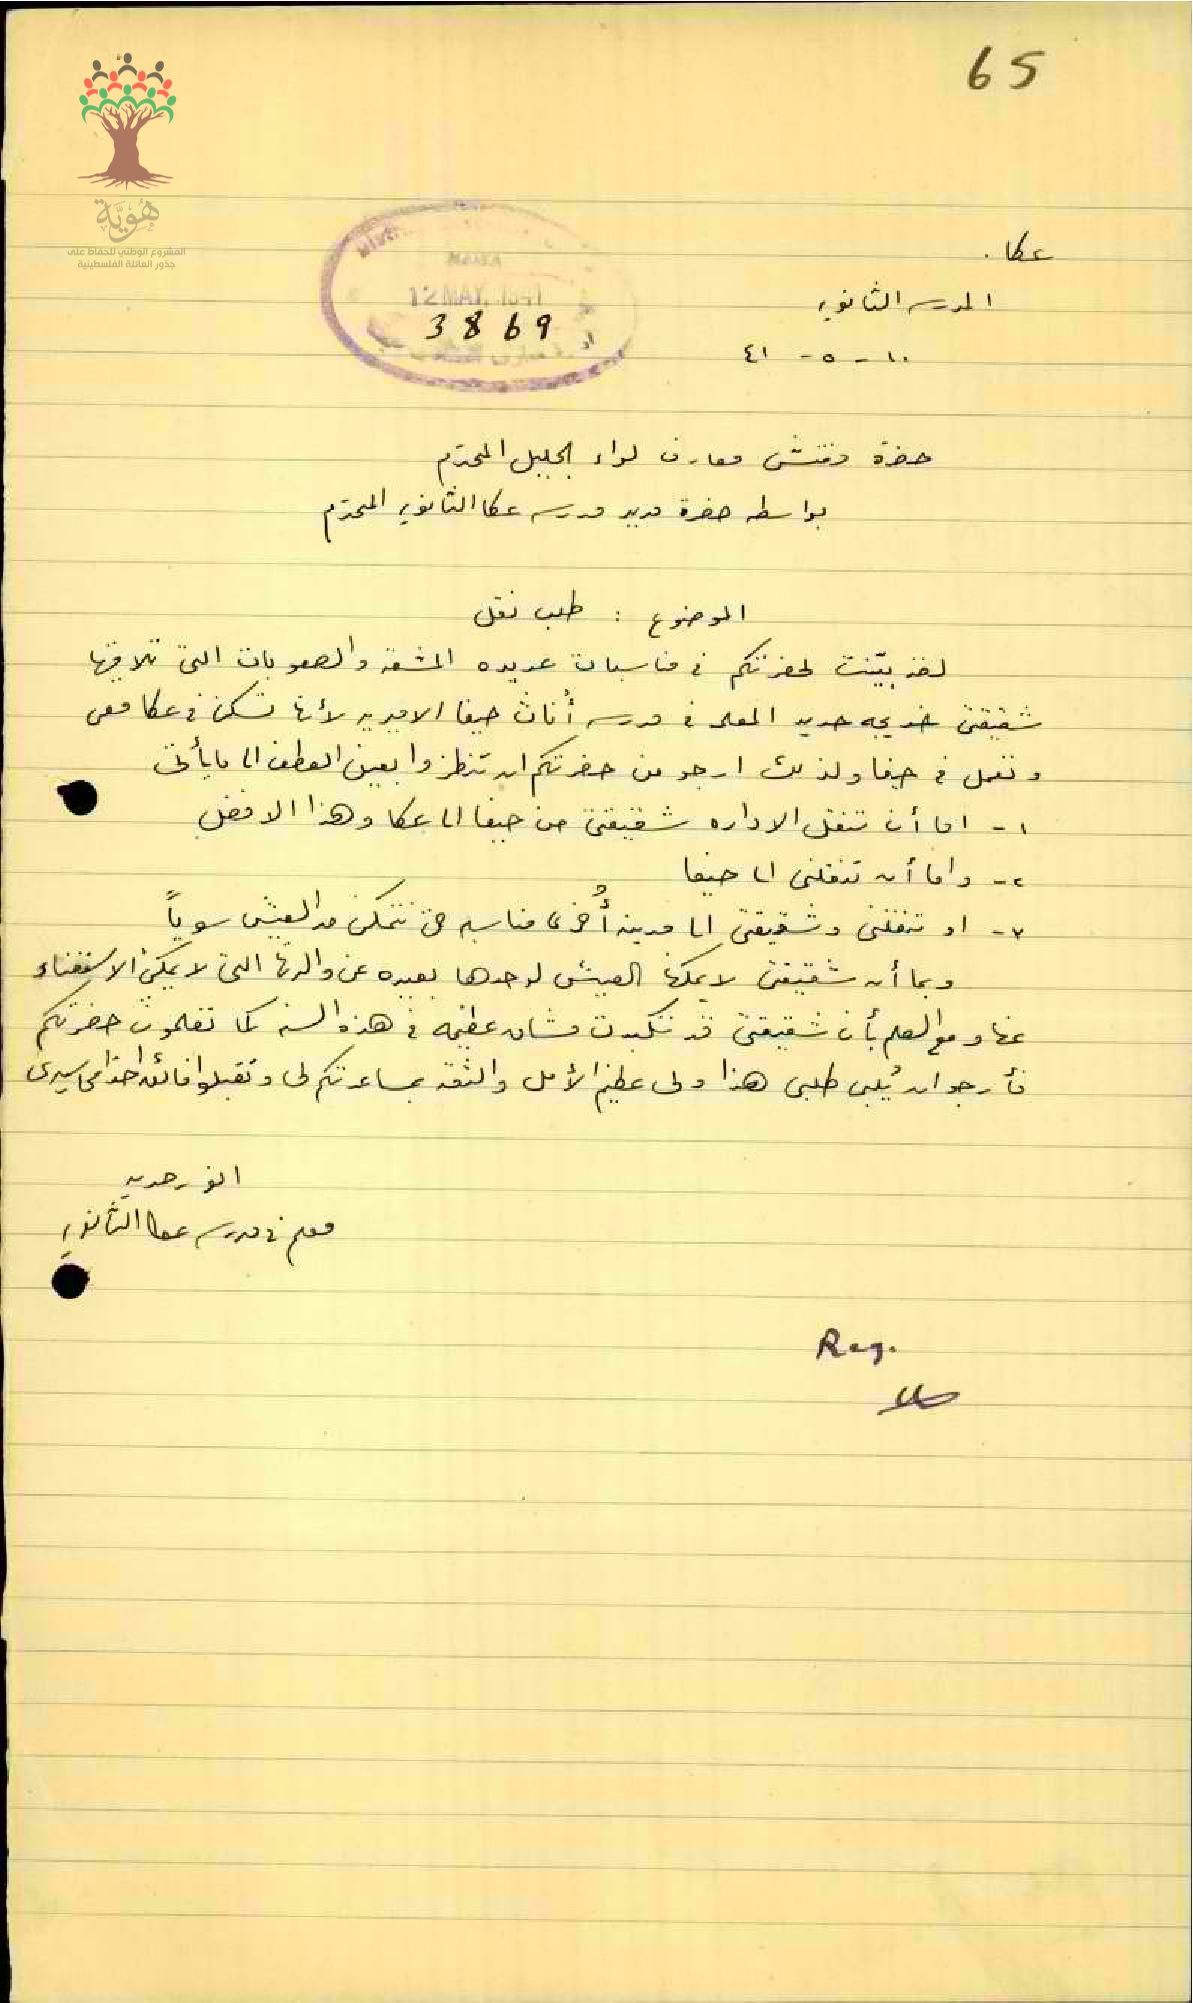 65
هُوِيَّة
المشروع الوطني للحفاظ على
جذور العائلة الفلسطينية
HAIFA
12 MAY. 1941
3869
عكا.
المدرسه الثانويه
١٠ - ٥ - ٤١
حضرة مفتش معارف لواء الجليل المحترم
بواسطه حضرة مدير مدرسه عكا الثانويه المحترم
الموضوع : طلب نقل
لقد بيّنت لحضرتكم في مناسبات عديده المشقه والصعوبات التي تلاقيها
شقيقتي خديجه حديد المعلمه في مدرسه أناث حيفا الاميريه لأنها تسكن في عكا معي
وتعمل في حيفا ولذلك ارجو من حضرتكم ان تنظروا بعين العطف الى ما يأتي
١- اما أن تنقل الاداره شقيقتي من حيفا الى عكا وهذا الافضل
٢- واما أن تنقلني الى حيفا
٣- او تنقلني وشقيقتي الى مدينه أُخرى مناسبه حتى نتمكن من العيش سوياً
وبما أن شقيقتي لا يمكنها العيش لوحدها بعيده عن والدتها التي لا يمكن الاستغناء
عنها ومع العلم بأن شقيقتي قد تكبدت مشاق عظيمه في هذه السنه كما تعلمون حضرتكم
فأرجو ان يُلبى طلبي هذا ولي عظيم الأمل والثقه بمساعدتكم لي وتقبلوا فائق احترامي سيدي
انور حديد
معلم في مدرسه عكا الثانويه
Reg.